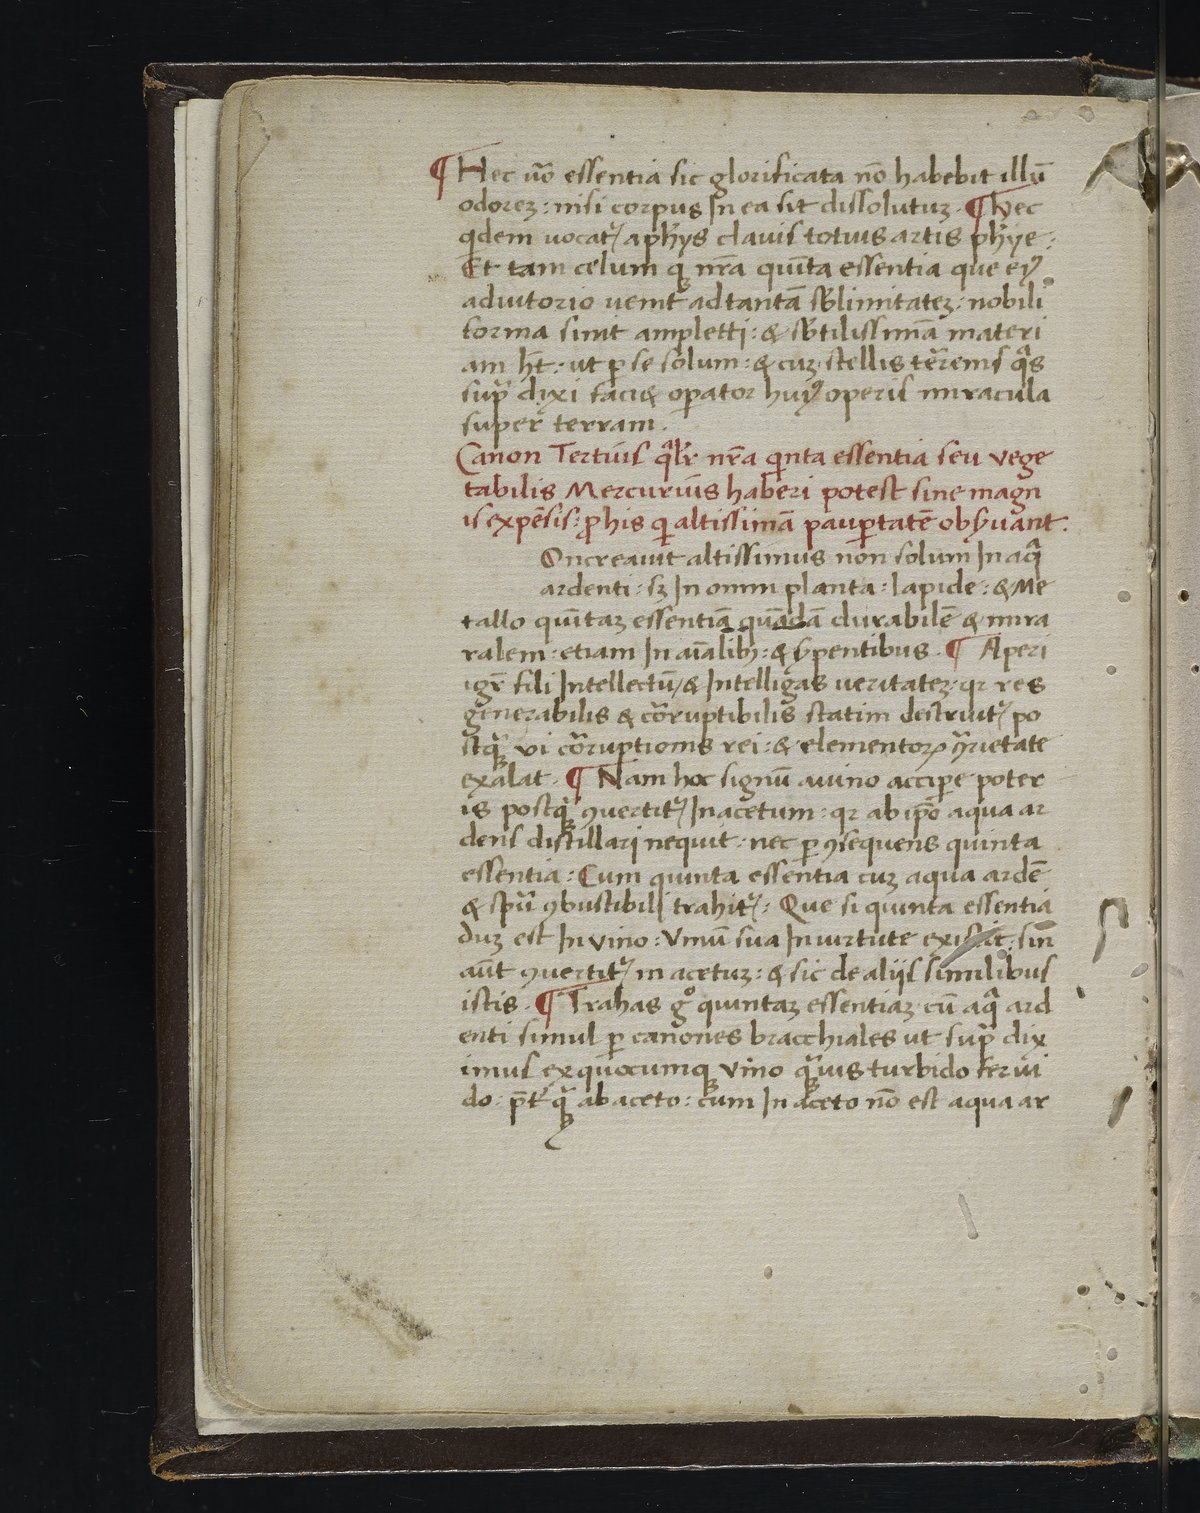 ¶ Hec uo̅ essentia sic glorificata no̅ habebit illu̅
odorez : nisi corpus In ea sit dissolutuz . ¶ Hec
qdem uocat᷑ a ph̅ys clauis totius artis ph̅ye :
Et tam celum q̨ nr̅a qui̅ta essentia que eiꝰ
adiutorio uenit ad tanta̅ sb̅limitatez : nobili
forma sunt ampletti : & sb̅tilissima̅ materi
am ht̅ : ut ꝑ se solum : & cuz stellis te̅renis qͣs
supͣ dixi faci& oꝑator huiꝰ operis miracula
super terram .
Canon Tertius qͣlr̅ nr̅a qinta essentia seu vege
tabilis Mercurius haberi potest sine magn
is expe̅sis : ꝓ his qi altissima̅ pauꝑtate̅ obẜuant :
On creauit altissimus non solum In aqͣ
ardenti : sz In omni planta : lapide : & Me
tallo qui̅taz essentia̅ qua̅da̅ durabile̅ & mira
ralem : etiam In ai̅alibꝫ : & ẜpentibus . ¶ Aperi
igr̅ fili Intellectu̅ / & Intelligas ueritatez : qr res
generabilis & co̅ruptibilis statim destruit᷑ po
stq̨ͣ vi co̅ruptionis rei : & elementoꝝ ꝯͣrietate
exalat . ¶ Nam hoc signu̅ a uino acciꝑe poter
is postq̨ͣ ꝯuertit᷑ In acetum : qr ab ip̅o aqua ar
dens distillari nequit : nec ꝑ ꝯsequens quinta
essentia : Cum quinta essentia cuz aqua arde̅
& spu̅ ꝯbustibili trahit᷑ : Que si quinta essentia
duz est In vino : Vinu̅ sua In uirtute existit : sin
aut̅ ꝯuertit᷑ in acetuz : & sic de aliis similibus
istis . ¶ Trahas gͦ quintaz essentiaz cu̅ aqͣ ard
enti simul ꝑ canones bracchiales ut supͣ dix
imus ex quocumq̨ vino q̨ͣuis turbido ferui
do : p̅t̓q̨ͣ ab aceto : cum In aceto no̅ est aqua ar